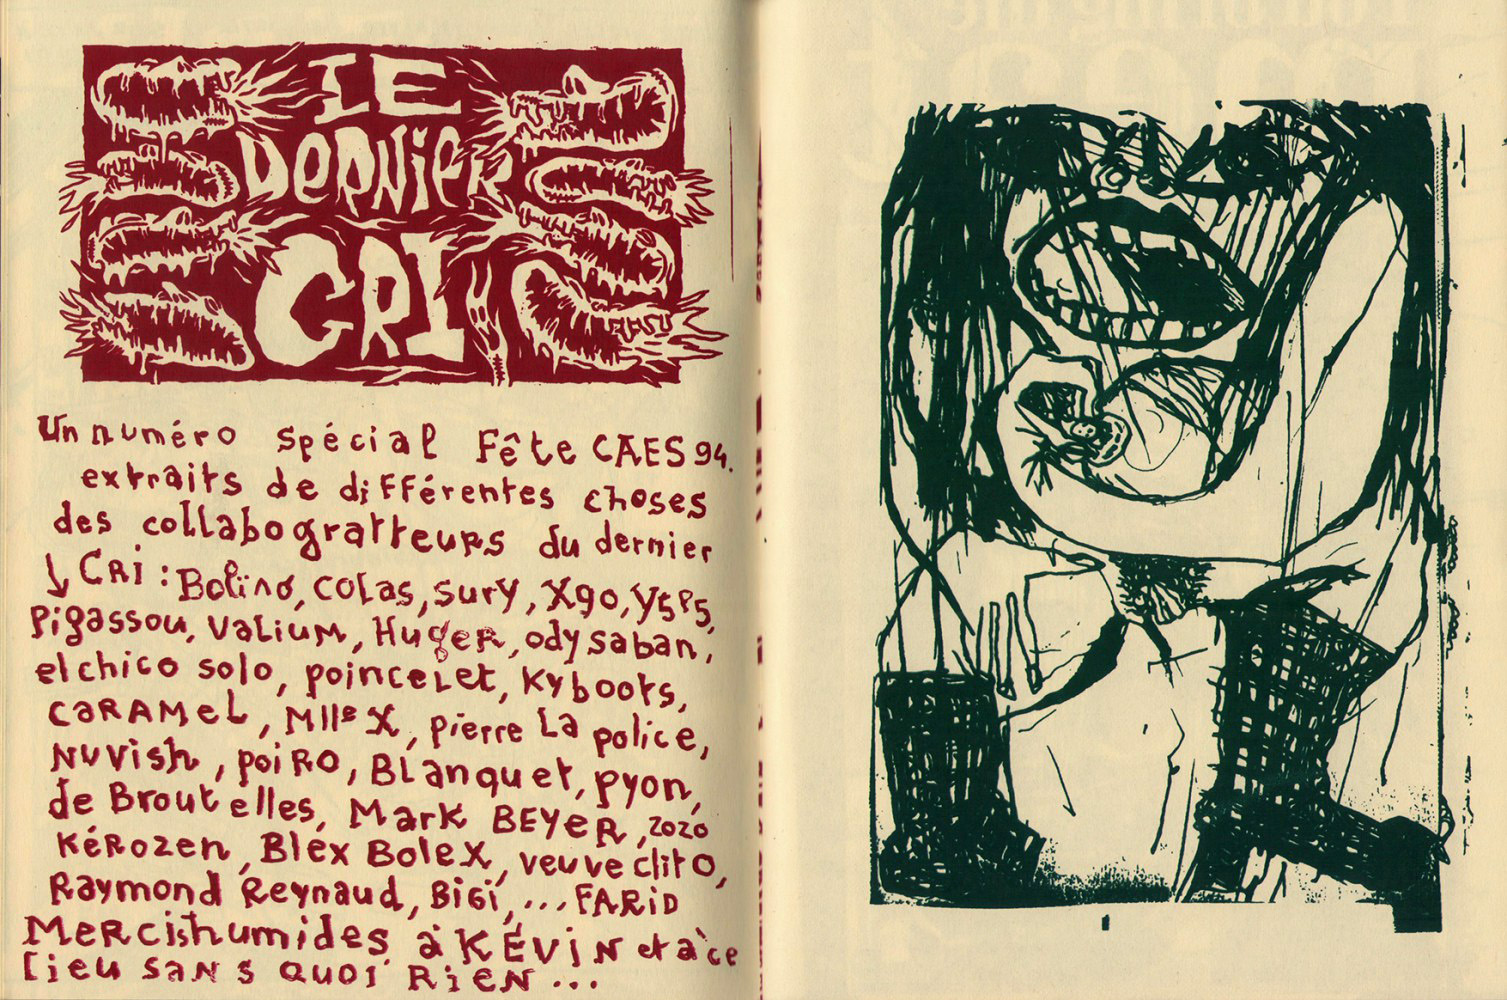 LE
DERNIER
CRI
Un numéro spécial Fête CAES 94.
extraits de différentes choses
des collabogratteurs du dernier
↓ CRI : Bolino, COLAS, sury, Xgo, Y5P5,
Pigassou, VALIUM, HugeR, ody saban,
el chico solo, poinceLet, Ky boots,
CARAMeL, Mlle X, pierre La police,
NUVish, poiRO, BLanquet, pyon,
de Broutelles, Mark BEYER, 2020
KéRozen, Blex BoleX, veuve clito,
Raymond Reynaud, BiGï, ... FARiD
MeRcishumides à KÉViN et à ce
lieu SANS QUOI RiEN ...